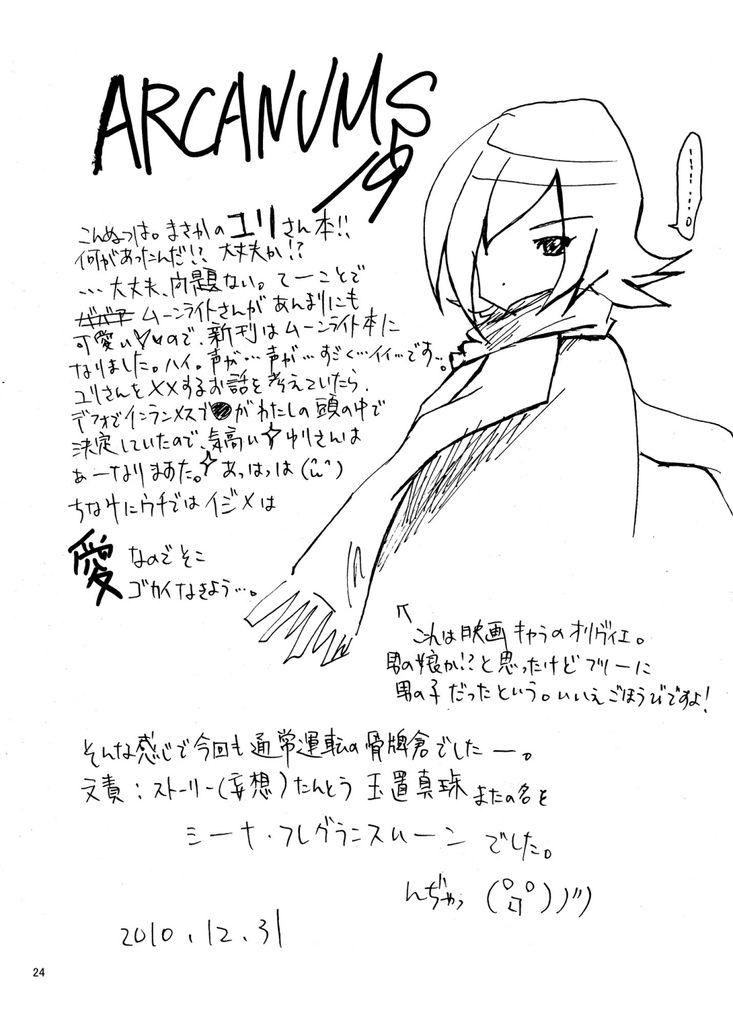 ARCANUMS
19
こんぬつは。まさかのユリさん本!!
何があったんだ!? 大丈夫か!?
…大丈夫、問題ない。てーことで
ババア ムーンライトさんがあんまりにも
可愛い♥♥ので、新刊はムーンライト本に
なりました。ハイ。声が…声が…すごく…イイ…です…。
ユリさんを××するお話を考えていたら、
デフォでインランメスブ●がわたしの頭の中で
決定していたので、気高い☆ゆりさんは
あーなりますた。☆ あっはっは(^^)
ちなみにウチではイジメは
愛なのでそこ
ゴカイなきよう…。
………。
これは映画キャラのオリヴィエ。
男の娘か!?と思ったけどフツーに
男の子だったという。いいえごほうびですよ!
そんな感じで今回も通常運転の骨牌倉でしたー。
文責:ストーリー(妄想)たんとう 玉置真珠 またの名を
シーナ・フレグランスムーン でした。
んぢゃっ
2010.12.31
24